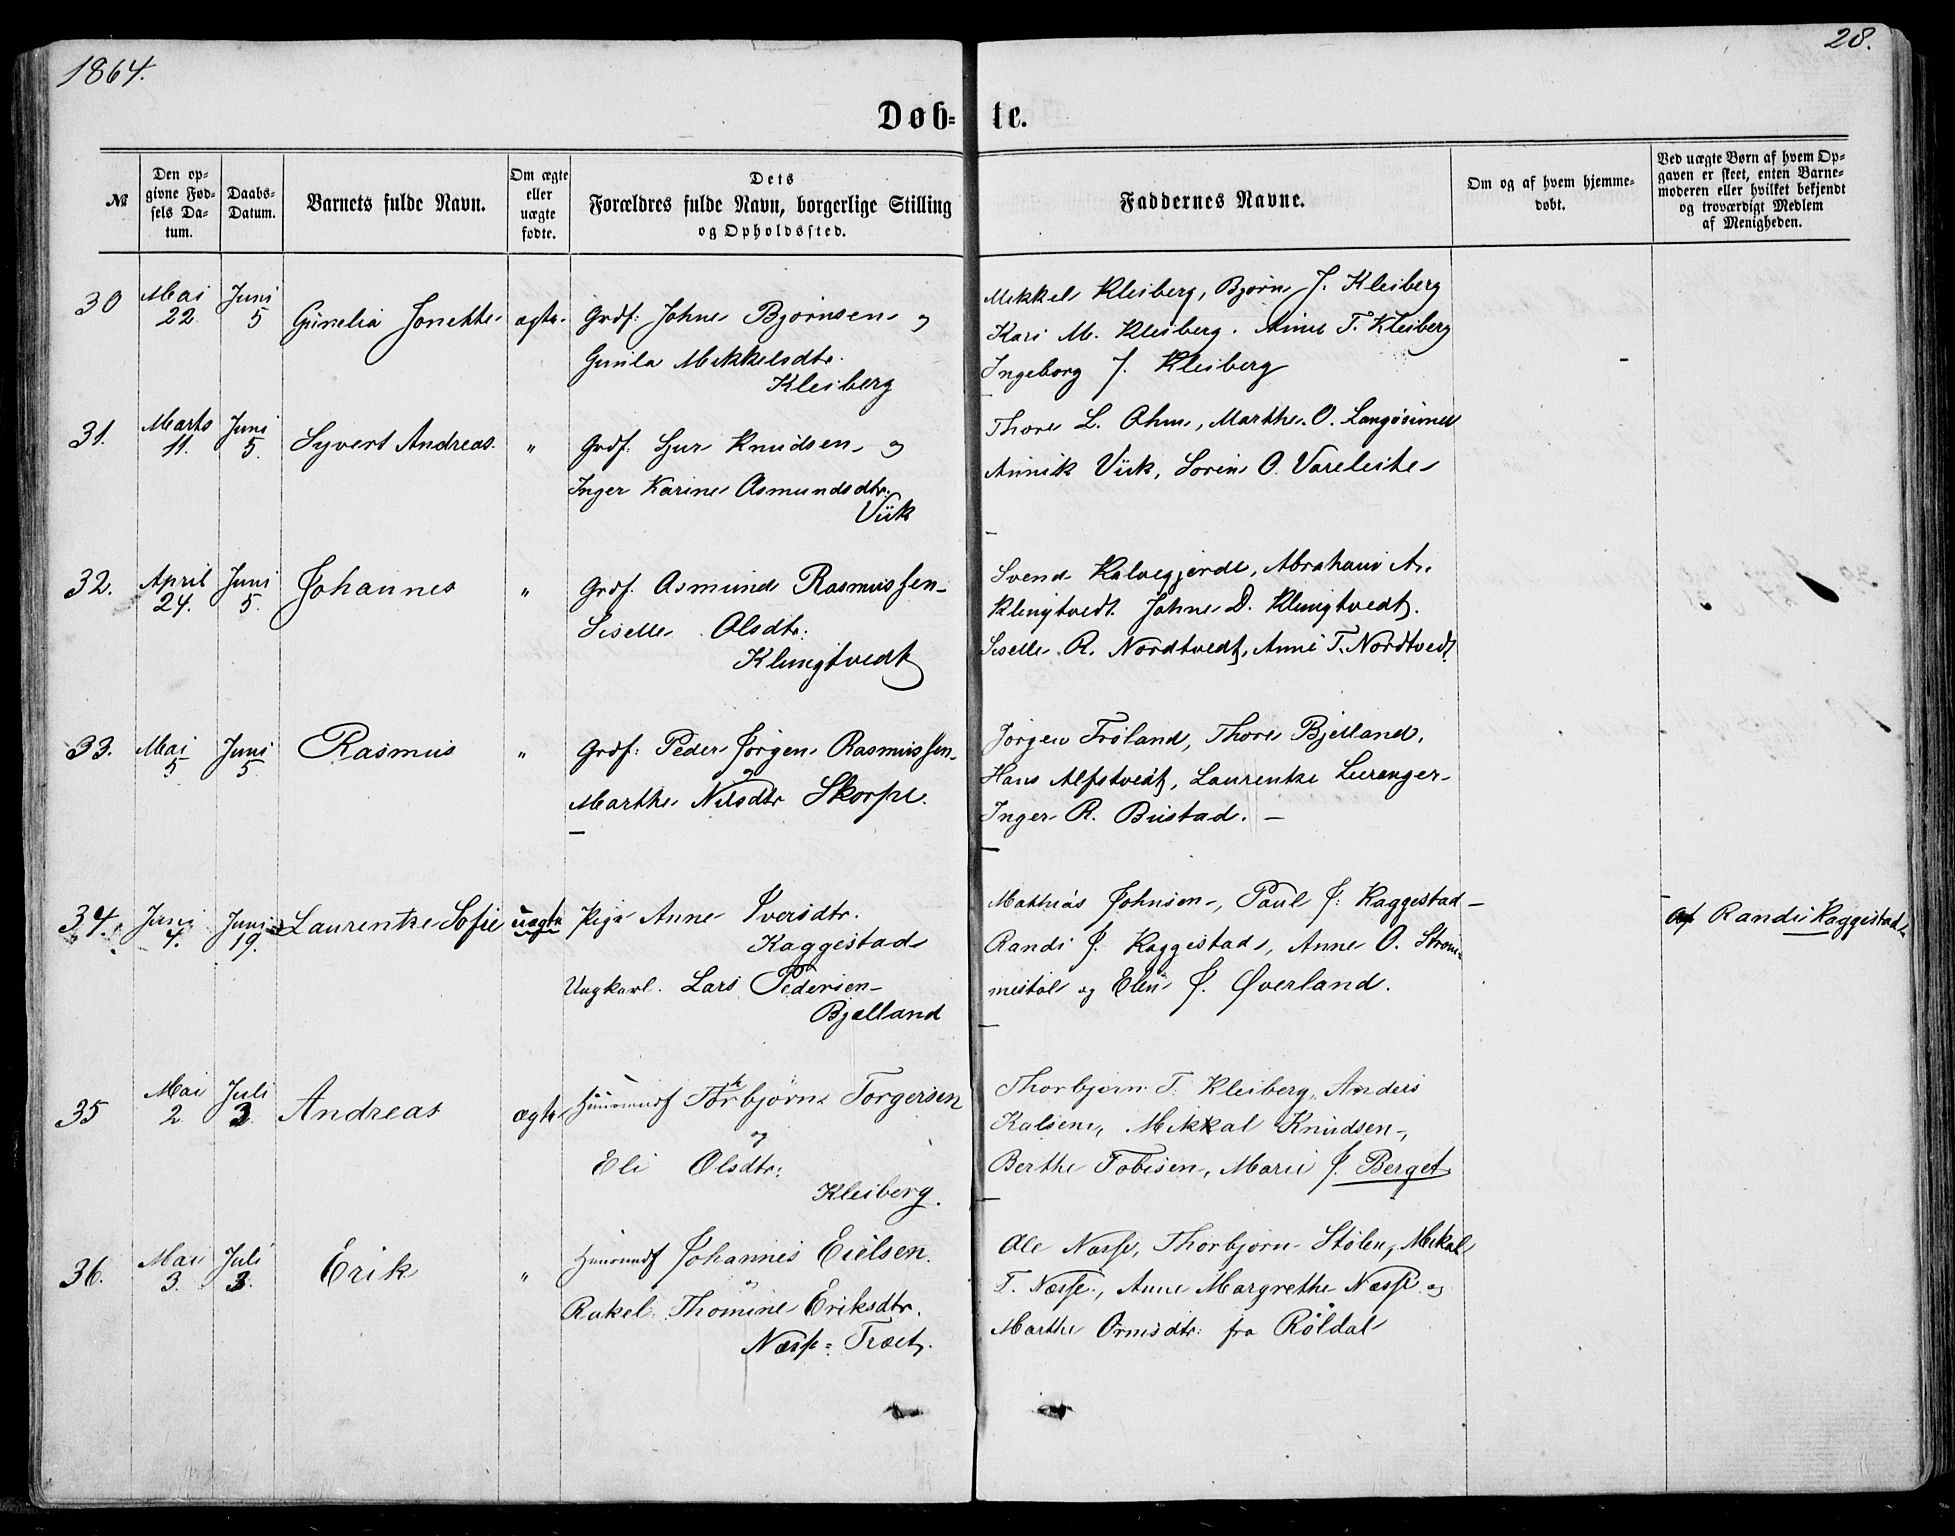 1864.
28.
Døb= te.
№
Den op-
givne Fød-
sels Da-
tum.
Daabs-
Datum.
Barnets fulde Navn.
Om ægte
eller
uægte
fødte.
Dets
Forældres fulde Navn, borgerlige Stilling
og Opholdssted.
Faddernes Navne.
Om og af hvem hjemme-
døbt.
Ved uægte Børn af hvem Op-
gaven er skeet, enten Barne-
moderen eller hvilket bekjendt
og troværdigt Medlem
af Menigheden.
30 Mai 22. Juni 5 Gunelia Jonette ægte. Grdf: Johne Bjørnsen og
Gunla Mikkelsdtr.
Kleiberg
Mikkel Kleiberg, Bjørn J. Kleiberg
Kari M. Kleiberg. Anne T. Kleiberg
Ingeborg J. Kleiberg
31. Marts 11. Juni 5. Syvert Andreas. " Grdf. Sjur Knudsen og
Inger Karine Asmundsdtr.
Viik
Thore L. Ohm, Marthe O.
Annik Viik, Sorine O. Vareleite
32. April 24. Juni 5. Johannes " Grdf. Asmund Rasmussen
Siselle Olsdtr:
Klungtvedt
Svend Kalvegjerde, Abraham A.
Klungtvedt. Johne D. Klungtvedt.
Siselle R. Nordtvedt, Anne T. Nordtvedt
33. Mai 5 Juni 5. Rasmus " Grdf: Peder Jørgen Rasmussen
og
Marthe Nilsdtr Skorpe.
Jørgen Frøland, Thore Bjelland,
Hans Alfstvedt, Laurentze Lurenger
Inger R. Bustad. —
34. Juni 4. Juni 19. Laurentze Sofie uægte Pige Anne Iversdtr.
Kaggestad
Ungkarl. Lars Pedersen
Bjælland
Mathias Johnsen, Paul J. Kaggestad —
Randi J. Kaggestad, Anne O. Strøm-
mestøl og Elen J. Øverland.
Af Randi Kaggestad
35 Mai 2. Juli 3. Andreas ægte Huusmdf Thorbjørn Torgersen
og
Eli Olsdtr:
Kleiberg.
Thorbjørn T. Kleiberg, Anders
Kalsene, Mikkal Knudsen,
Berthe Tobisen, Marie J. Berget
36. Mai 3. Juli 3. Erik " Huusmdf Johannes Eielsen.
og
Rakel Thomine Eriksdtr.
Næsse=Træet.
Ole Næsse, Thorbjørn Stølen, Mikal
T. Næsse, Anne Margrethe Næsse og
Marthe Ormsdtr: fra Røldal